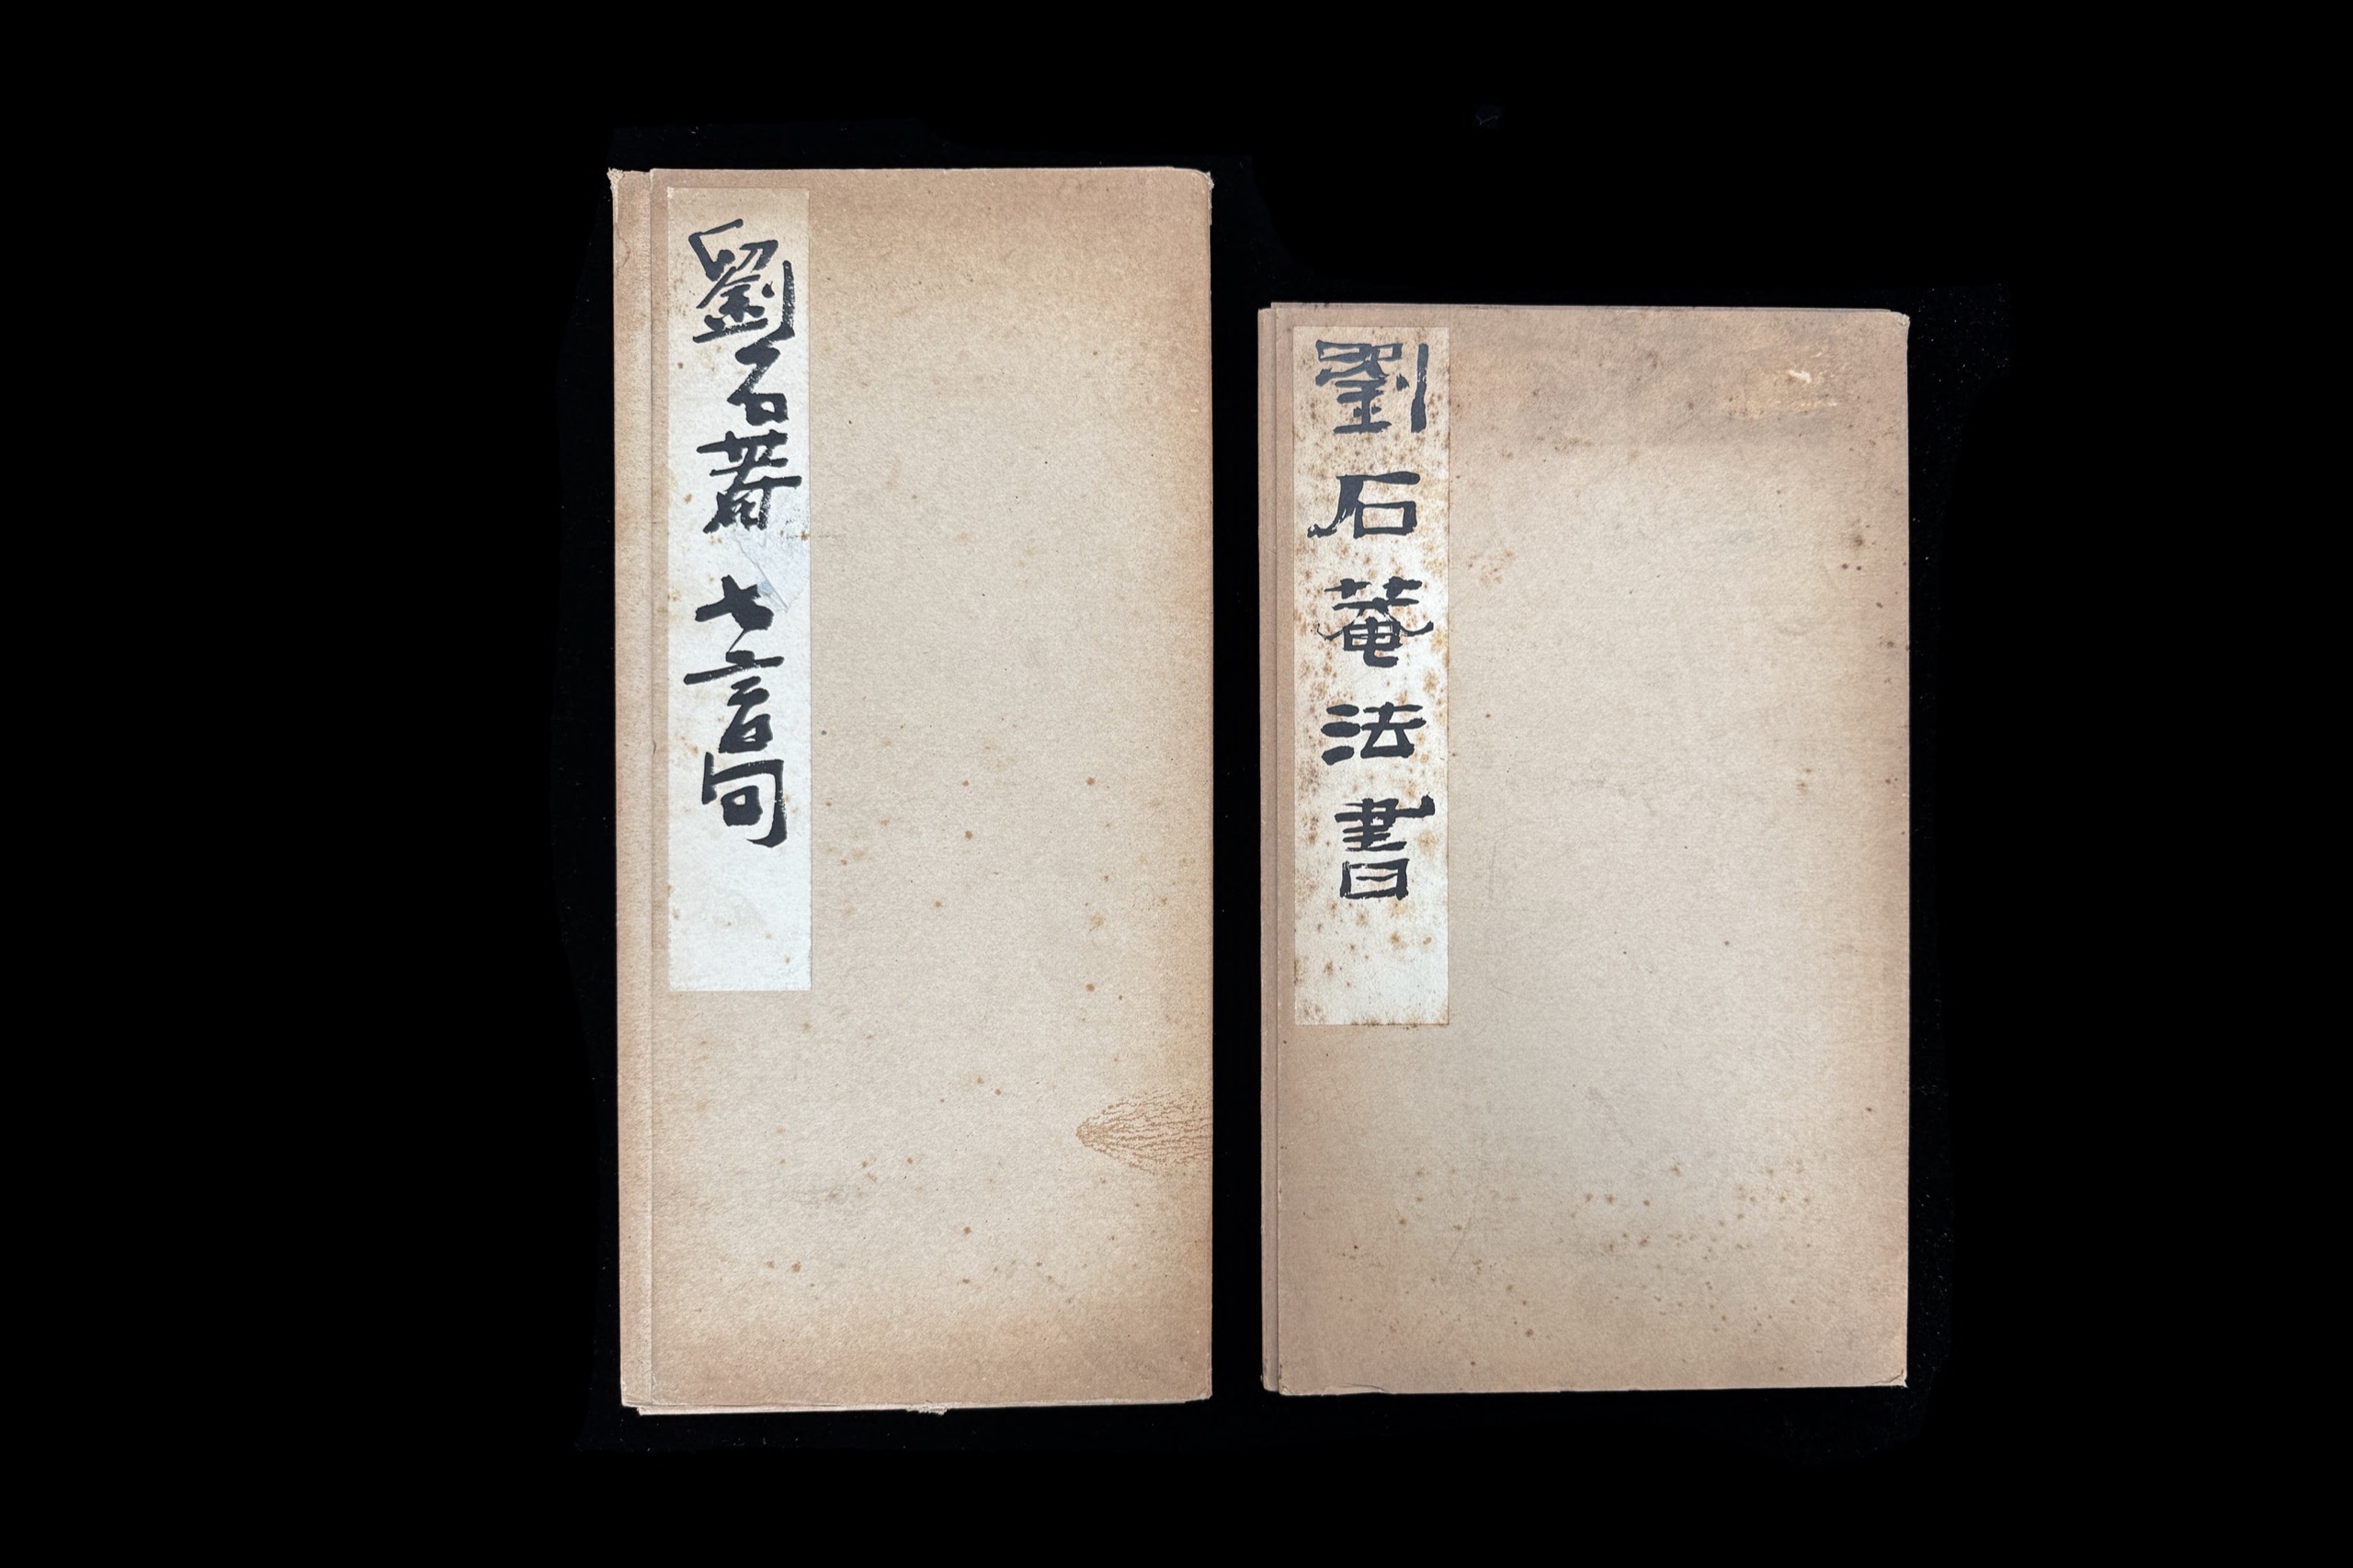 劉石菴七言句
劉石菴法書